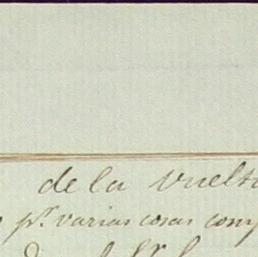 de la vuelta
pr. varias cosas comp